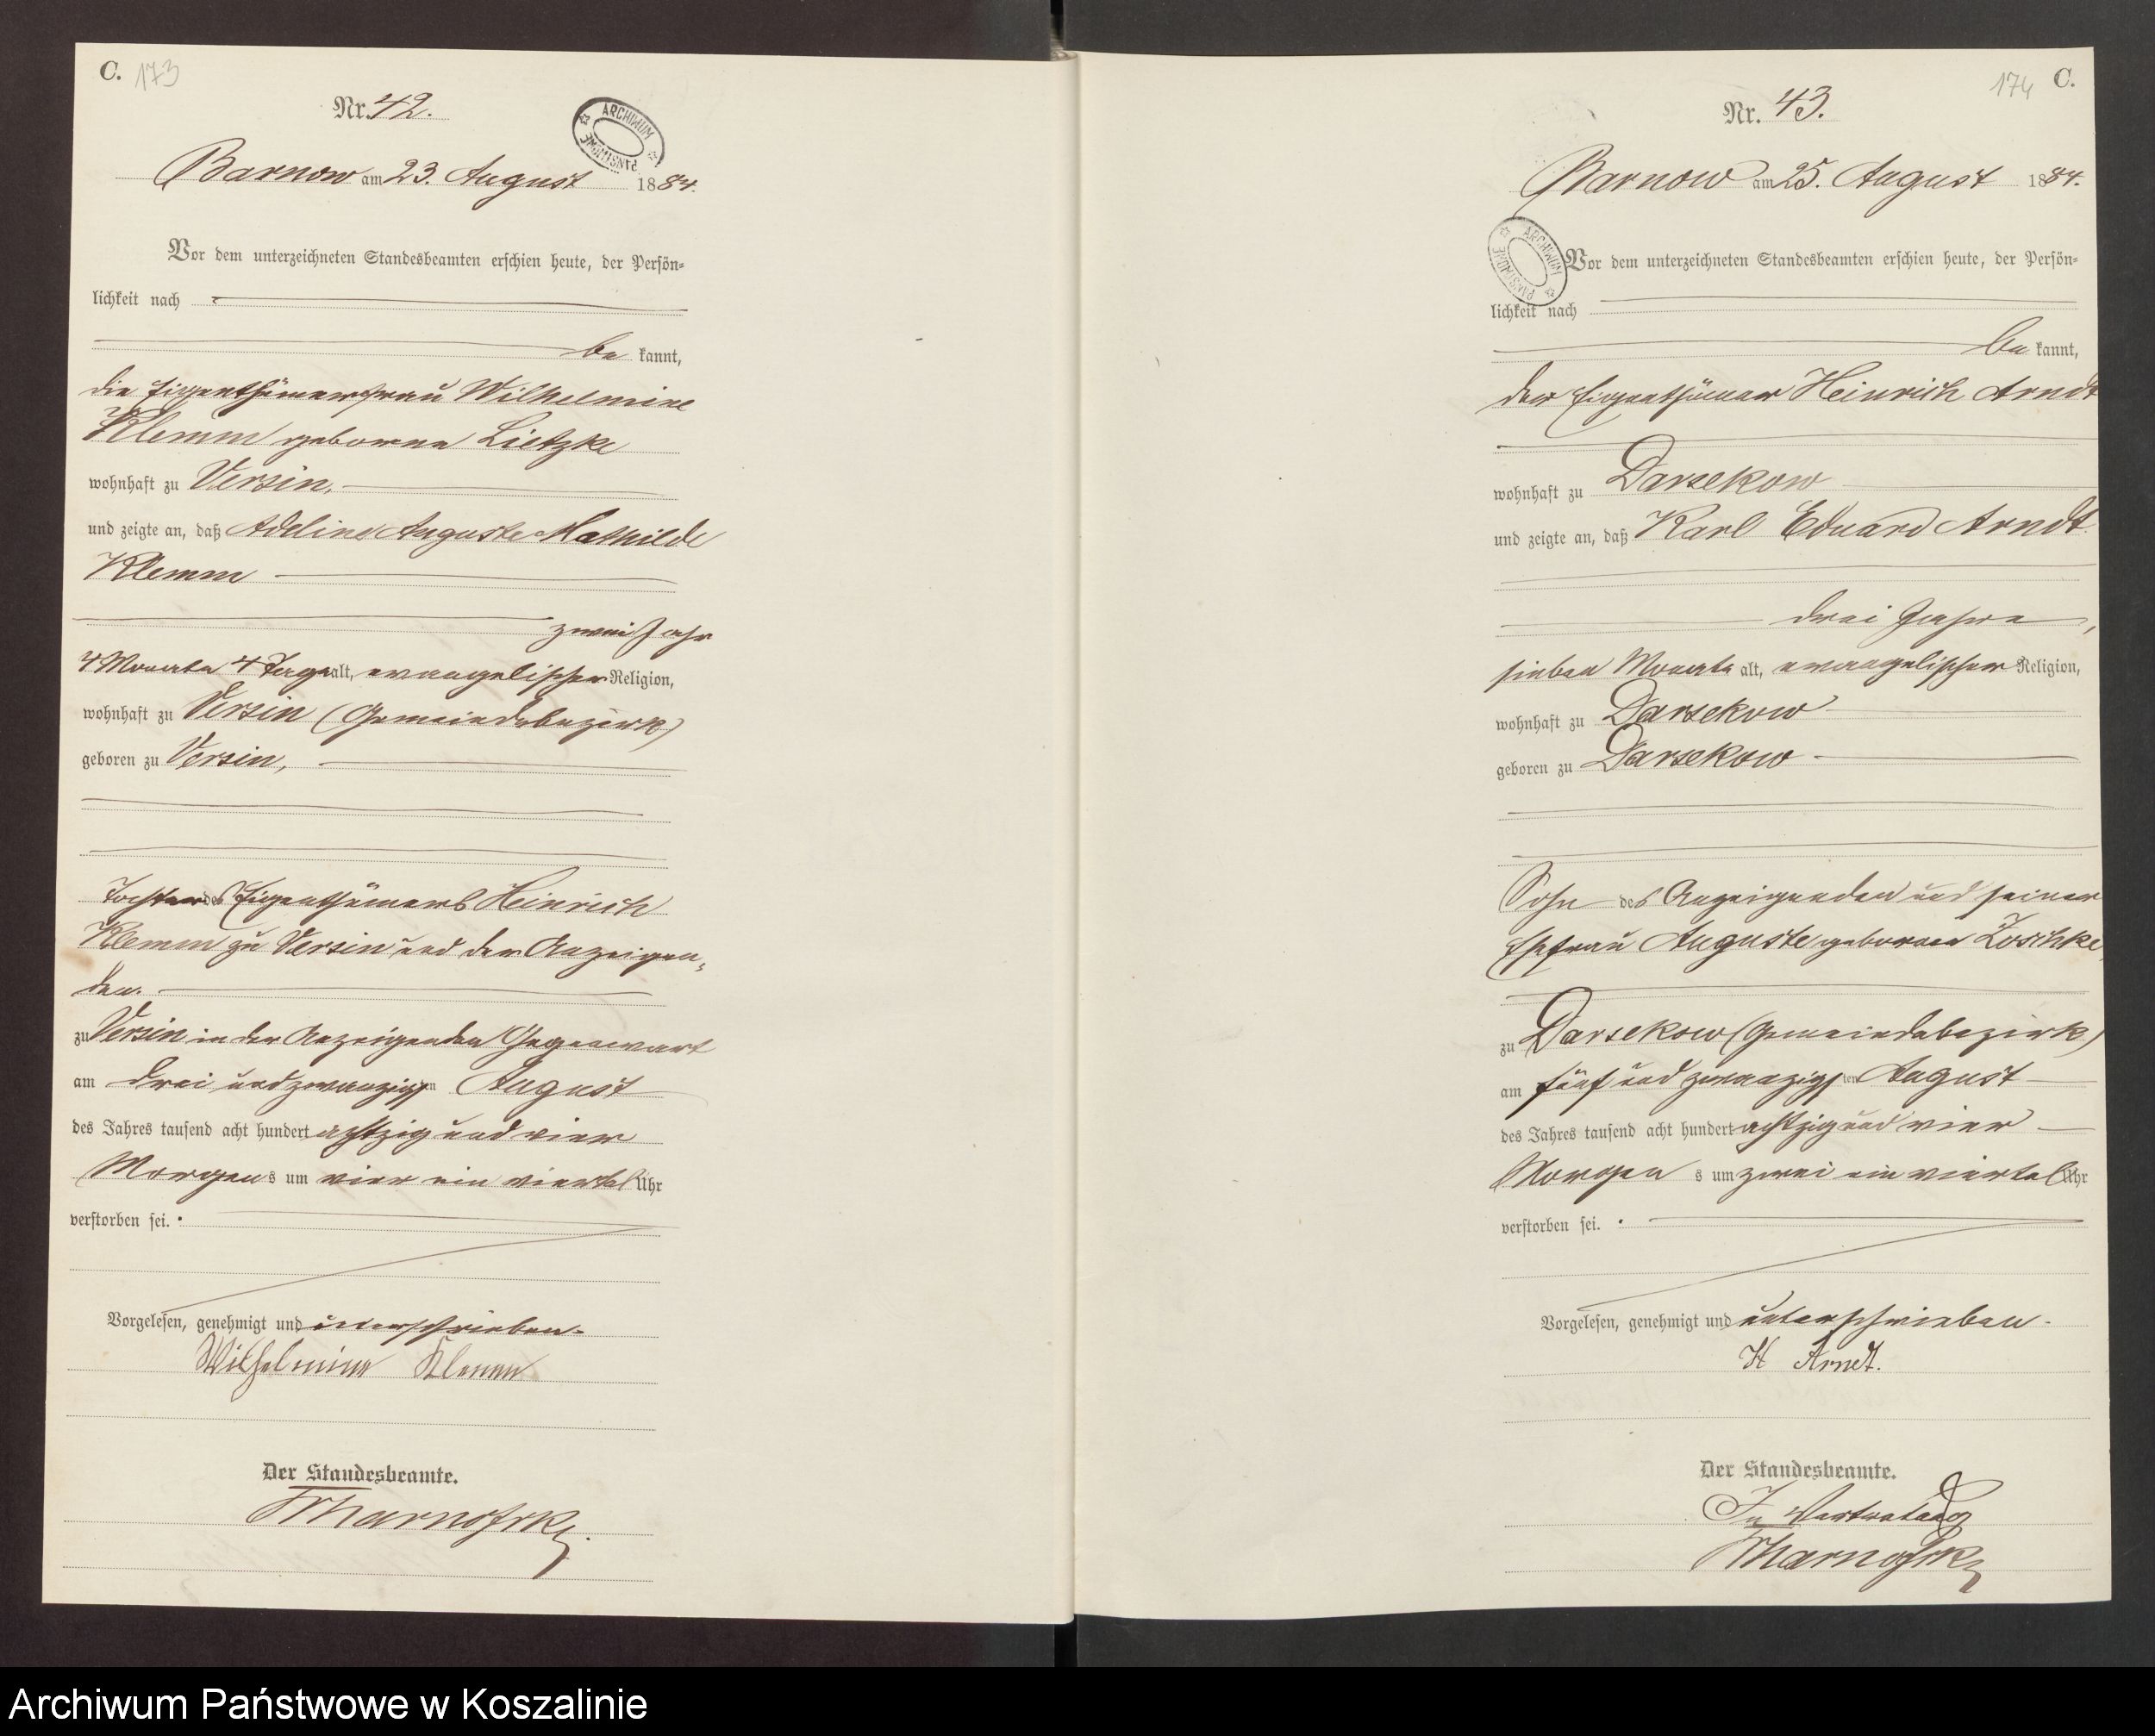 C. 173
Nr. 42.
ARCHIWUM PAŃSTWOWE
Barnow am 23. August 1884.
Vor dem unterzeichneten Standesbeamten erschien heute, der Persön-
lichkeit nach
be kannt,
die Eigenthümerfrau Wilhelmine
Klemm geborne Lietzke
wohnhaft zu Versin,
und zeigte an, daß Adeline Auguste Mathilde
Klemm
zwei Jahr
4 Monate 4 Tage alt, evangelischer Religion,
wohnhaft zu Versin (Gemeindebezirk)
geboren zu Versin,
Tochter des Eigenthümers Heinrich
Klemm zu Versin und der Anzeigen-
den.
zu Versin in der Anzeigenden Gegenwart
am drei und zwanzigsten August
des Jahres tausend acht hundert achtzig und vier
Morgens um vier ein viertel Uhr
verstorben sei.
Vorgelesen, genehmigt und unterschrieben.
Wilhelmine Klemm
Der Standesbeamte.
174 C.
Nr. 43.
Barnow am 25. August 1884.
ARCHIWUM PAŃSTWOWE
Vor dem unterzeichneten Standesbeamten erschien heute, der Persön-
lichkeit nach
be kannt,
der Eigenthümer Heinrich Arndt
wohnhaft zu Darsekow
und zeigte an, daß Karl Eduard Arndt
drei Jahre,
sieben Monate alt, evangelischer Religion,
wohnhaft zu Darsekow
geboren zu Darsekow
Sohn des Anzeigenden und seiner
Ehefrau Auguste geborner Zoschke
zu Darsekow (Gemeindebezirk)
am fünf und zwanzigsten August
des Jahres tausend acht hundert achtzig und vier
Morgens um zwei ein viertel Uhr
verstorben sei.
Vorgelesen, genehmigt und unterschrieben.
H Arndt.
Der Standesbeamte.
In Vertretung
Archiwum Państwowe w Koszalinie